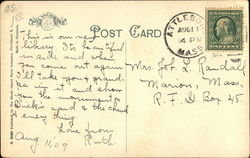 POST CARD
ATTLEBORO
AUG 11
4 PM
MASS.
This is our new
library. It's beautiful
inside and when
you come out again
I'll take your grand-
pa in it and show
you the monument
and every thing
Love from
Ruth.
Aug 11, 09
Mrs. Job L. Randall
Marion, Mass.
R. F. D Box 45